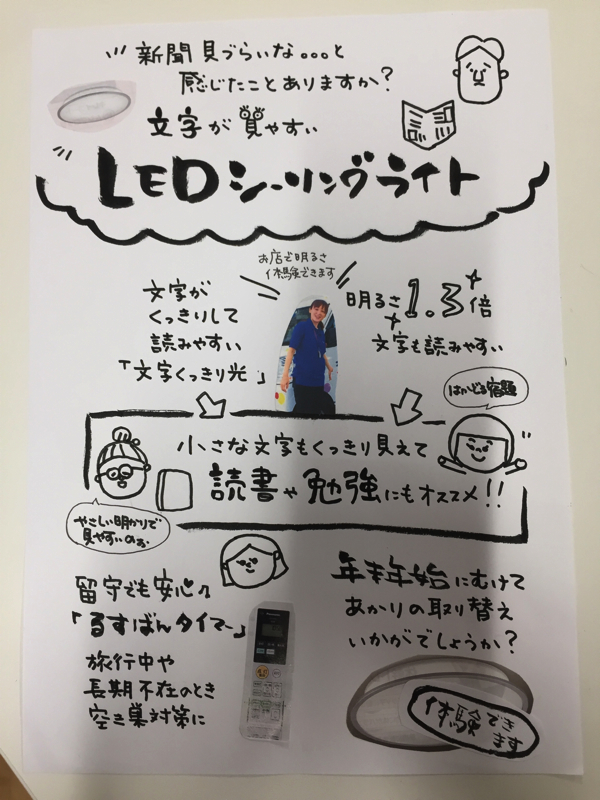 新聞見づらいな。。。と
感じたことありますか?
文字が見やすい
LEDシーリングライト
お店で明るさ
体験できます
文字が
くっきりして
読みやすい
「文字くっきり光」
明るさ1.3倍
文字も読みやすい
はかどる宿題
小さな文字もくっきり見えて
読書や勉強にもオススメ!!
やさしい明かりで
見やすいのぉ
留守でも安心♪
「るすばんタイマー」
旅行中や
長期不在のとき
空き巣対策に
年末年始にむけて
あかりの取り替え
いかがでしょうか?
体験でき
ます